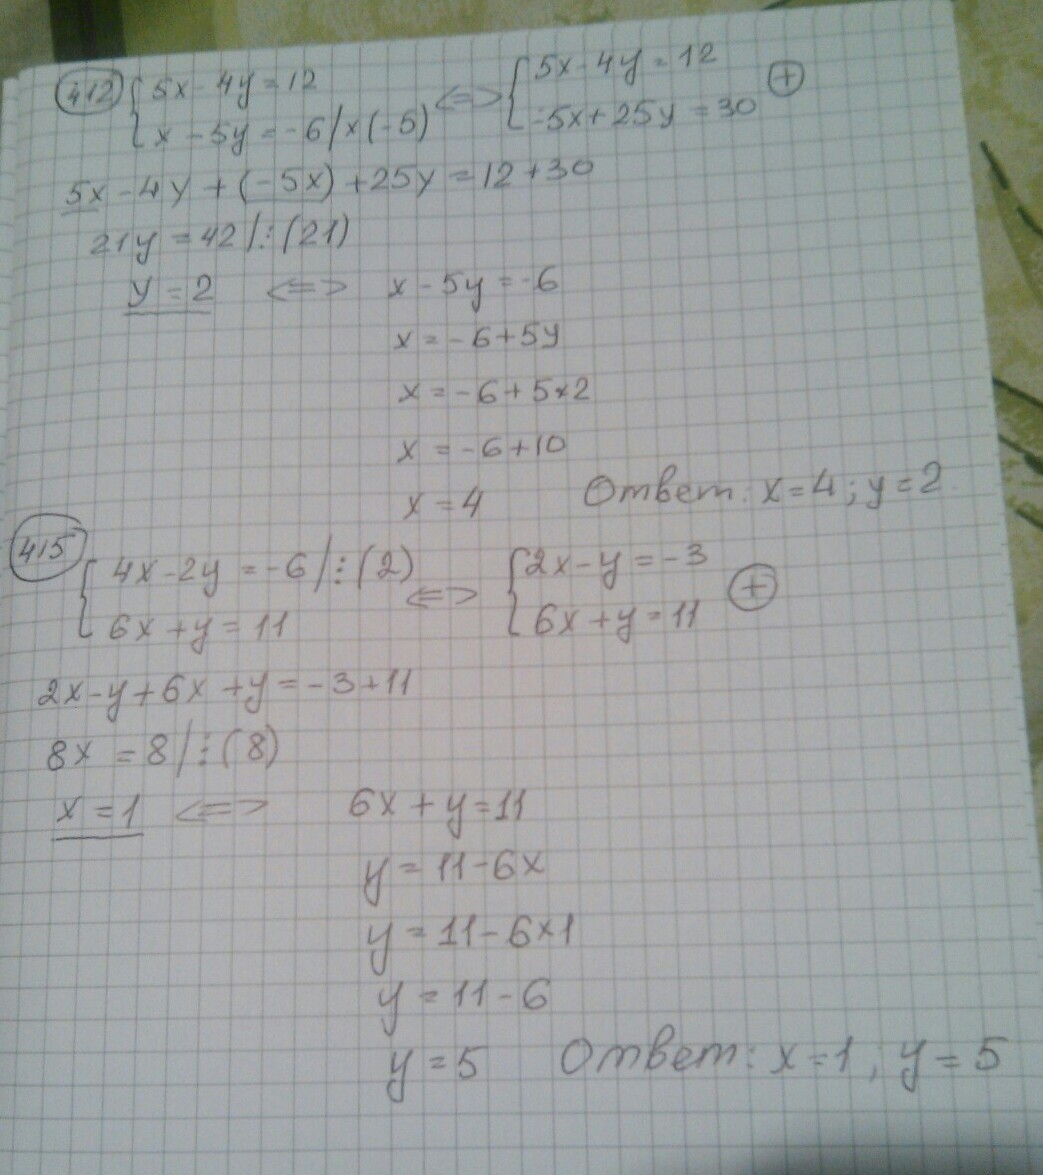 412 { 5x - 4y = 12 <=> { 5x - 4y = 12 (+)
x - 5y = -6 /x(-5) -5x + 25y = 30
5x - 4y + (-5x) + 25y = 12 + 30
21y = 42 /:(21)
y = 2 <=> x - 5y = -6
x = -6 + 5y
x = -6 + 5x2
x = -6 + 10
x = 4 Ответ: x = 4; y = 2.
415 { 4x - 2y = -6 /:(2) <=> { 2x - y = -3 (+)
6x + y = 11 6x + y = 11
2x - y + 6x + y = -3 + 11
8x = 8 /:(8)
x = 1 <=> 6x + y = 11
y = 11 - 6x
y = 11 - 6x1
y = 11 - 6
y = 5 Ответ: x = 1; y = 5